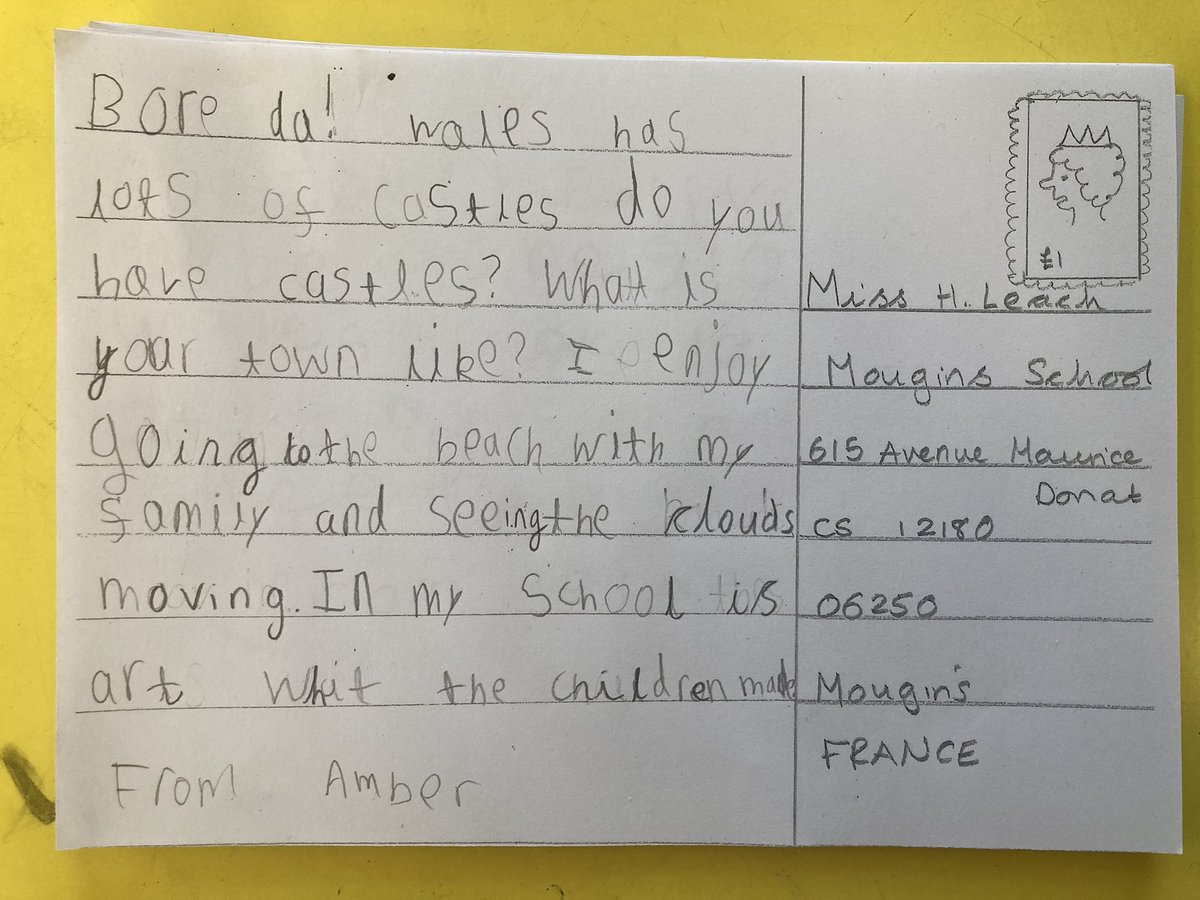 Bore da! wales has
lots of castles do you
have castles? What is
your town like? I enjoy
going to the beach with my
family and seeing the klouds
moving. In my School is
art whit the children made
From Amber
£1
Miss H. Leach
Mougins School
615 Avenue Maurice
Donat
CS 12180
06250
Mougins
FRANCE